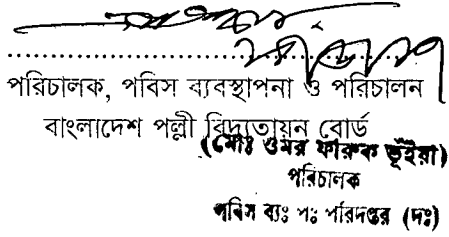 পরিচালক, পবিস ব্যবস্থাপনা ও পরিচালন
বাংলাদেশ পল্লী বিদ্যুতায়ন বোর্ড
(মোঃ ওমর ফারুক ভূঁইয়া)
পরিচালক
পবিস ব্যঃ পঃ পরিদপ্তর (দঃ)